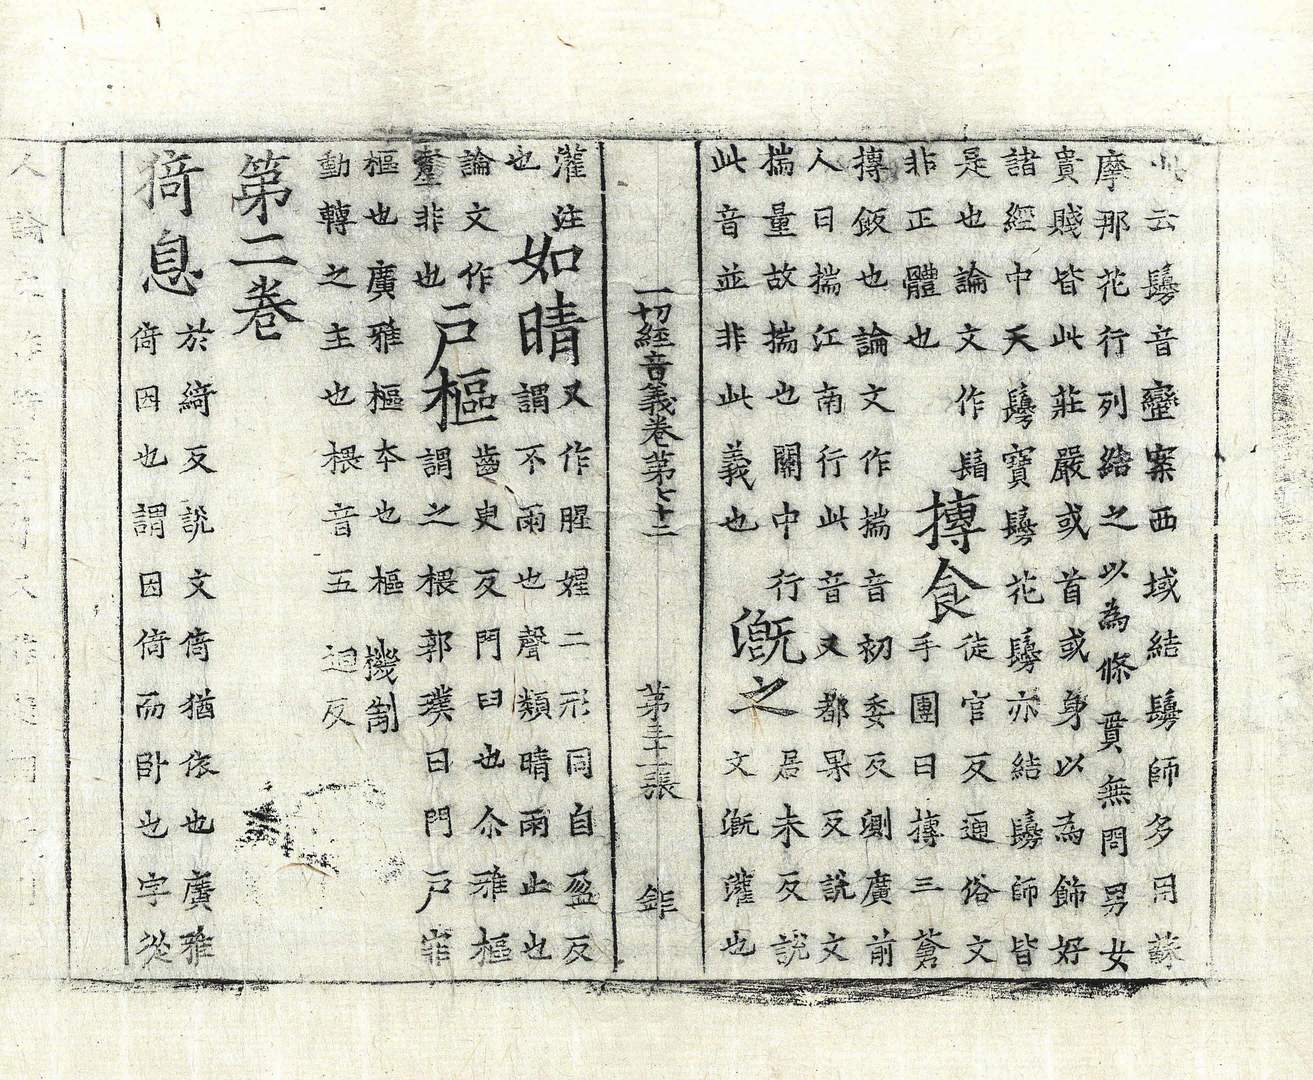 此云鬘音蠻案西域結鬘師多用蘇
摩那花行列結之以為條貫無問男女
貴賤皆此莊嚴或首或身以為飾好
諸經中天鬘寶鬘花鬘亦結鬘師皆
是也論文作䰅
非正體也
摶食
徒官反通俗文
手團曰摶三蒼
摶飯也論文作揣音初委反測廣前
人曰揣江南行此音又都果反說文
揣量故揣也關中行
此音並非此義也
溉之
居未反說
文溉灌也
一切經音義卷第七十二
第三十一張
灌注
也
如晴
又作腥姓二形同自盈反
謂不雨也聲類晴雨止也
論文作
鼞非也
戶樞
齒臾反門臼也尒雅樞
謂之椳郭璞曰門戶扉
樞也廣雅樞夲也樞機制
動轉之主也椳音五迴反
第二卷
猗息
於綺反說文倚猶依也廣雅
倚因也謂因倚而卧也字從